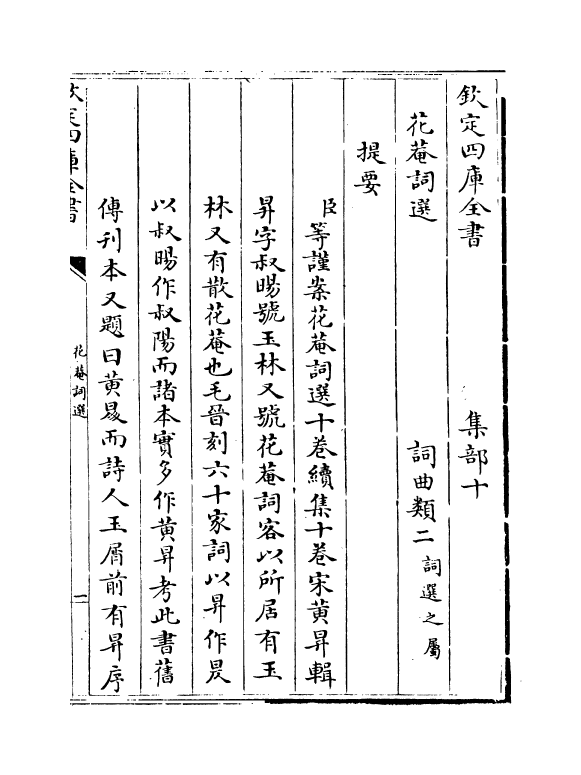 欽定四庫全書 集部十
花菴詞選 詞曲類二 詞選之屬
提要
臣等謹案花菴詞選十卷續集十卷宋黄昇輯
昇字叔暘號玉林又號花菴詞客以所居有玉
林又有散花菴也毛晉刻六十家詞以昇作昃
以叔暘作叔陽而諸本實多作黄昇考此書舊
傳刊本又題曰黄昃而詩人玉屑前有昇序
欽定四庫全書
花菴詞選